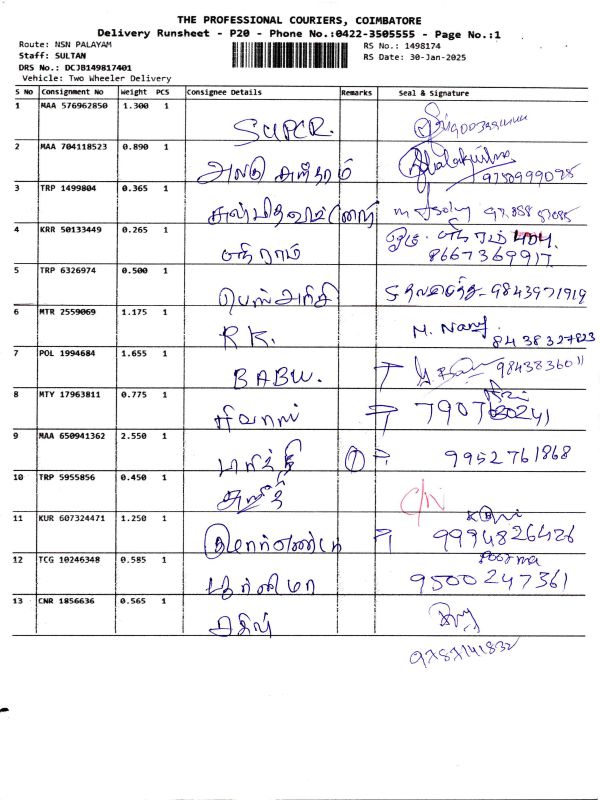 THE PROFESSIONAL COURIERS, COIMBATORE
Delivery Runsheet - P20 - Phone No.:0422-3505555 - Page No.:1
Route: NSN PALAYAM RS No.: 1498174
Staff: SULTAN RS Date: 30-Jan-2025
DRS No.: DCJB149817401
Vehicle: Two Wheeler Delivery
S No Consignment No Weight PCS Consignee Details Remarks Seal & Signature
1 MAA 576962850 1.300 1 SUPER.
2 MAA 704118523 0.890 1 9750999095
3 TRP 1499804 0.365 1
4 KRR 50133449 0.265 1 எதிராம்
8667369917
5 TRP 6326974 0.500 1 9843971919
6 MTR 2559069 1.175 1 R.K. M. 8438327823
7 POL 1994684 1.655 1 BABU. 9843836011
8 MTY 17963811 0.775 1
9 MAA 650941362 2.550 1 1 9952761868
10 TRP 5955856 0.450 1
11 KUR 607324471 1.250 1 9994826426
12 TCG 10246348 0.585 1 பூர்ணிமா Poorma
9500247361
13 CNR 1856636 0.565 1
9787141832